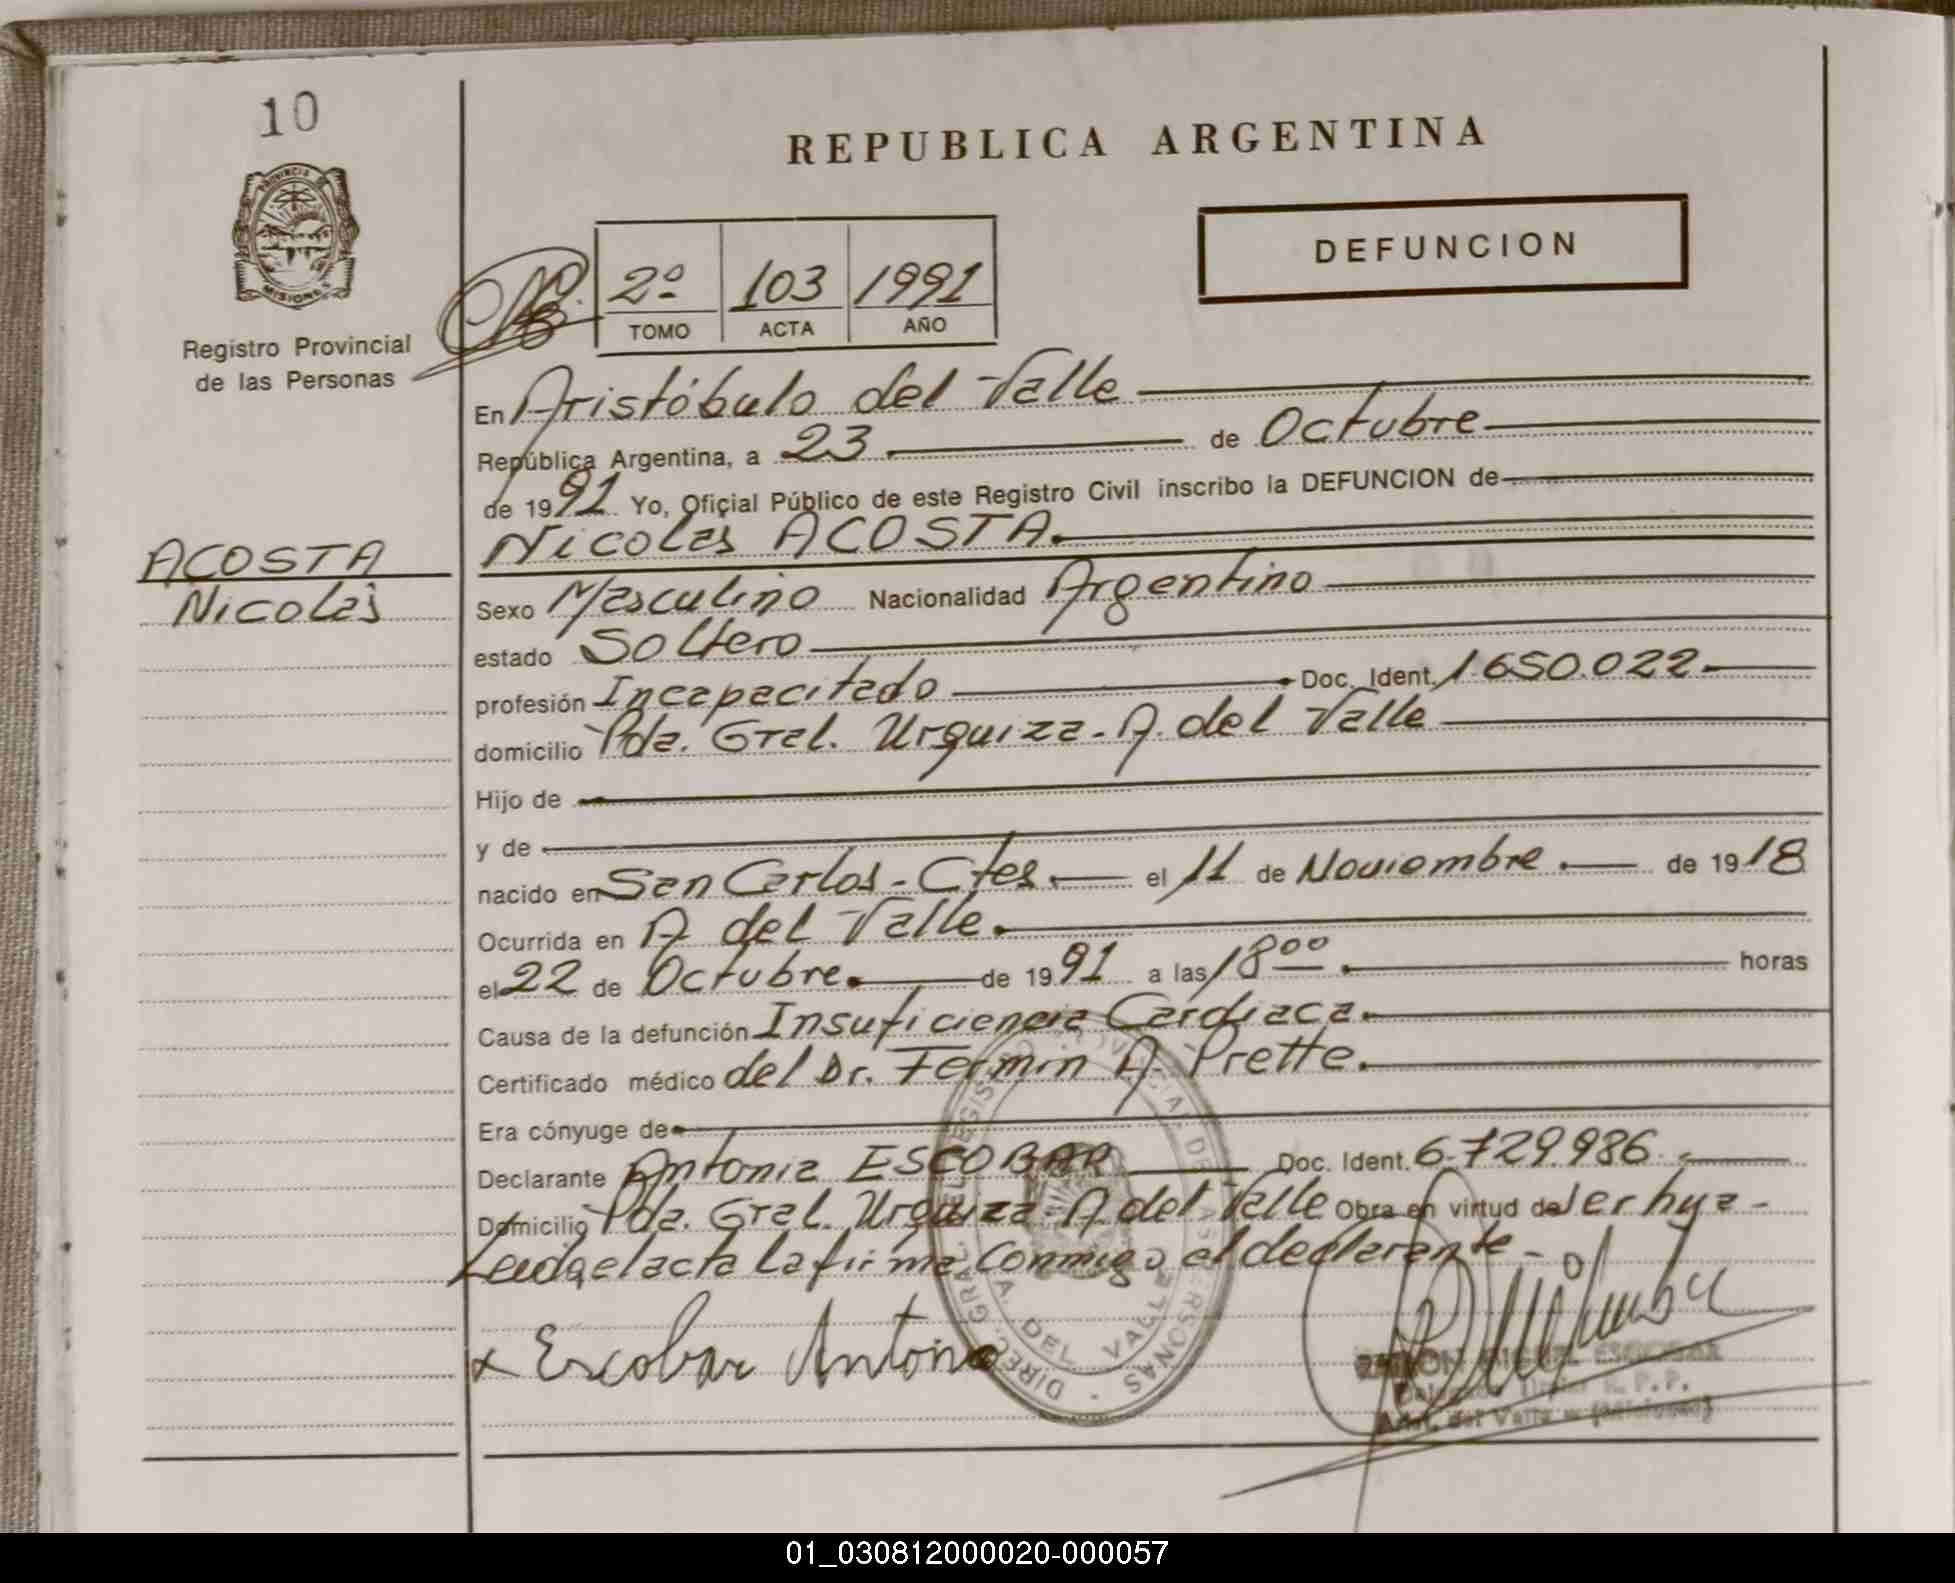 10
REPUBLICA ARGENTINA
PROVINCIA DE
MISIONES
DEFUNCION
2º 103 1991
TOMO ACTA AÑO
Registro Provincial
de las Personas
En Aristóbulo del Valle
República Argentina, a 23 de Octubre
de 1991 Yo, Oficial Público de este Registro Civil inscribo la DEFUNCION de
Nicolas ACOSTA.
ACOSTA
Nicolás
Sexo Masculino Nacionalidad Argentino
estado Soltero
profesión Incapacitado Doc. Ident. 1.650.022
domicilio Pda. Gral. Urquiza - A. del Valle
Hijo de
y de
nacido en San Carlos - Ctes. el 11 de Noviembre. de 1918
Ocurrida en A del Valle.
el 22 de Octubre. de 1991 a las 18 00 horas
Causa de la defunción Insuficiencia Cardiaca.
Certificado médico del Dr. Fermin A. Prette.
Era cónyuge de
Declarante Antonia ESCOBAR Doc. Ident. 6.729.986.
Domicilio Pda. Gral. Urquiza - A. del Valle Obra en virtud de ser hya -
Leida el acta la firma conmigo el declarante -
x Escobar Antonia
DIREC. GRAL. DEL REGISTRO PROVINCIAL DE LAS PERSONAS
A. DEL VALLE
RAMON MIGUEL
R. P. P.
del Valle - (Misiones)
01_030812000020-000057